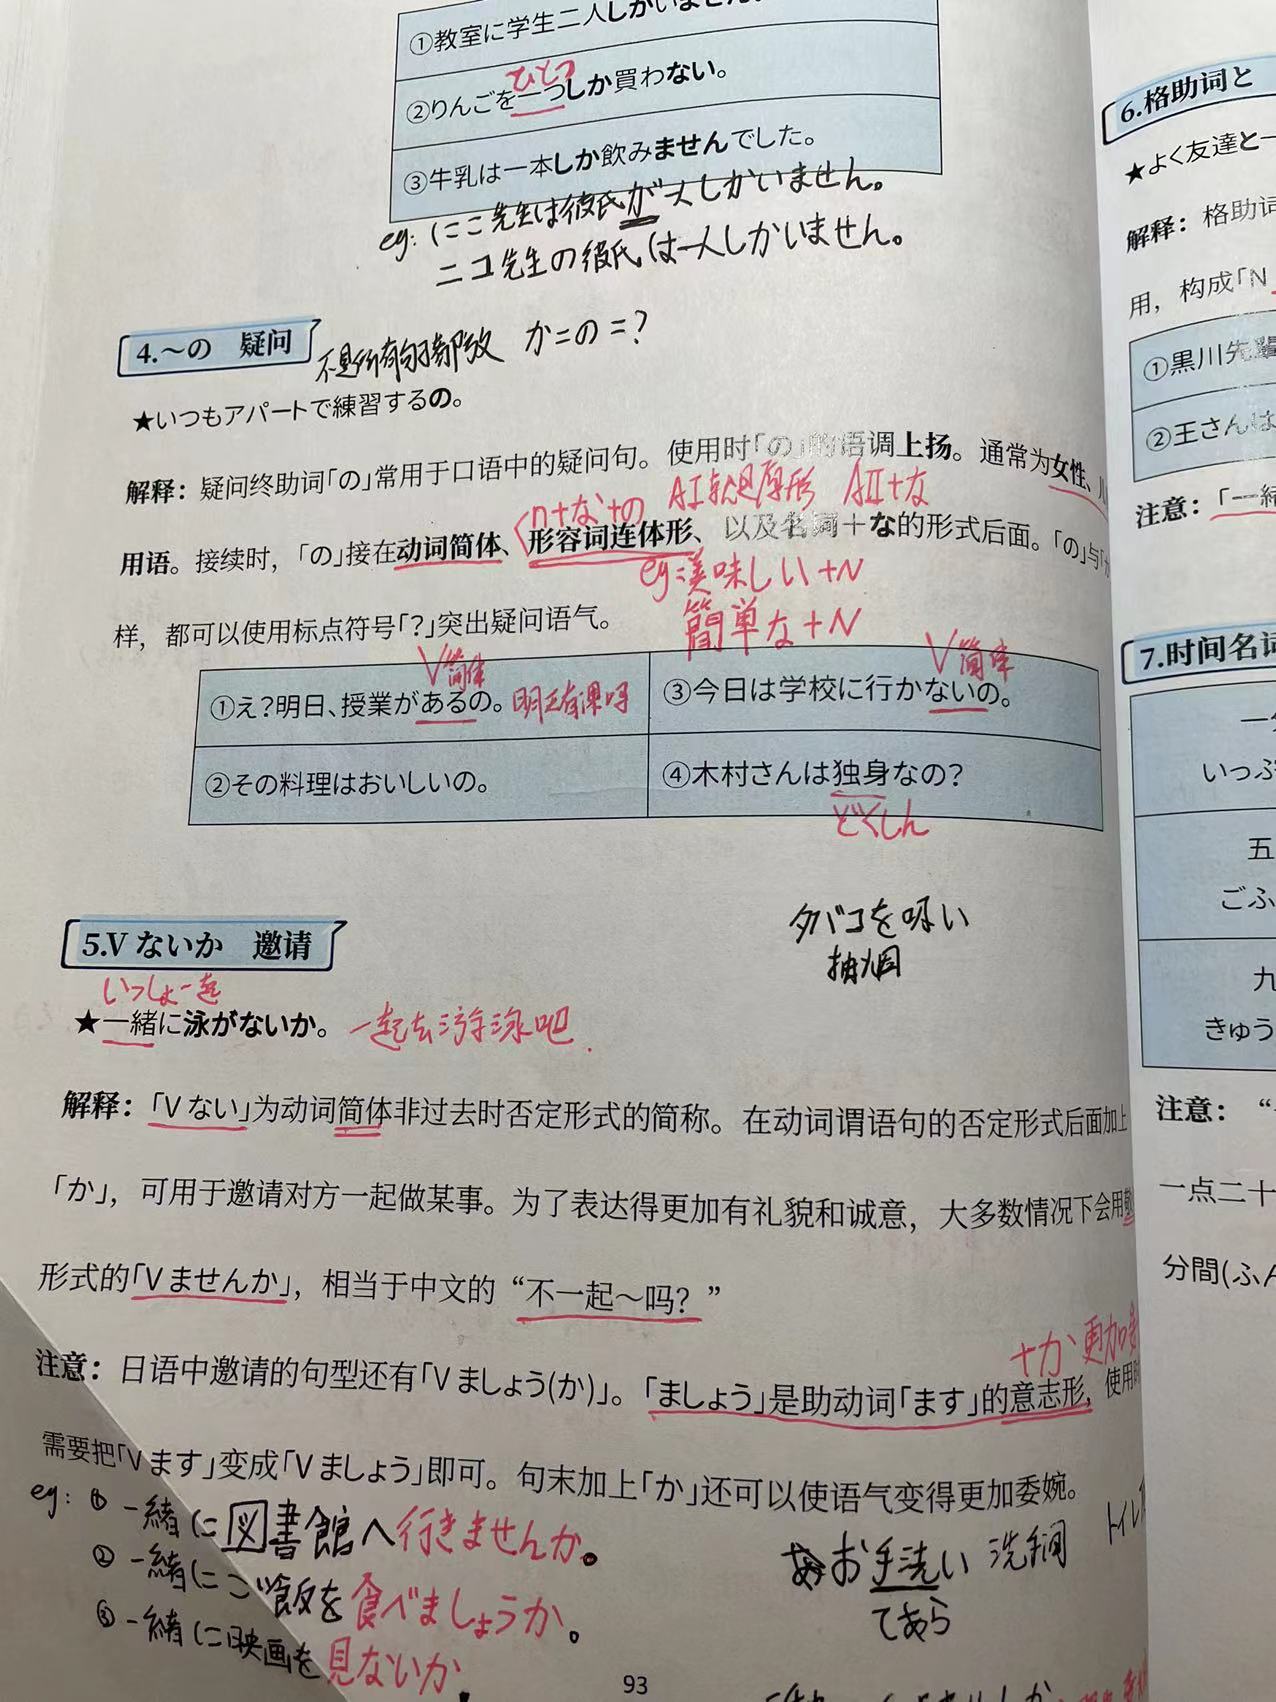 ①教室に学生二人しかいません。
ひとつ
②りんごを一つしか買わない。
③牛乳は一本しか飲みませんでした。
eg: にこ先生は彼氏が一人しかいません。
ニコ先生の彼氏は一人しかいません。
4.～の 疑问
不是所有句子都放 か=の=？
★いつもアパートで練習するの。
解释：疑问终助词「の」常用于口语中的疑问句。使用时「の」的语调上扬。通常为女性、儿
n+な+の AI就是原形 AII+な
用语。接续时，「の」接在动词简体、形容词连体形、以及名词＋な的形式后面。「の」与「か
eg:美味しい+N
簡単な+N
样，都可以使用标点符号「？」突出疑问语气。
V简体
V简体
①え？明日、授業があるの。 明天有课吗
③今日は学校に行かないの。
②その料理はおいしいの。
④木村さんは独身なの？
どくしん
タバコを吸い
抽烟
5.Vないか 邀请
いっしょ一起
★一緒に泳がないか。 一起去游泳吧.
解释：「Vない」为动词简体非过去时否定形式的简称。在动词谓语句的否定形式后面加上
「か」，可用于邀请对方一起做某事。为了表达得更加有礼貌和诚意，大多数情况下会用
形式的「Vませんか」，相当于中文的“不一起～吗？”
+か 更加
注意：日语中邀请的句型还有「Vましょう(か)」。「ましょう」是助动词「ます」的意志形，使用时
需要把「Vます」变成「Vましょう」即可。句末加上「か」还可以使语气变得更加委婉。
eg: ① 一緒に図書館へ行きませんか。
② 一緒にご飯を食べましょうか。
③ 一緒に映画を見ないか
お手洗い 洗手间
てあら
トイレ
93
6.格助词と
★よく友達と一
解释：格助词
用，构成「N
①黒川先輩
②王さんは
注意：「一緒
7.时间名词
一分
いっぷ
五
ごふ
九
きゅう
注意：“
一点二十
分間(ふん